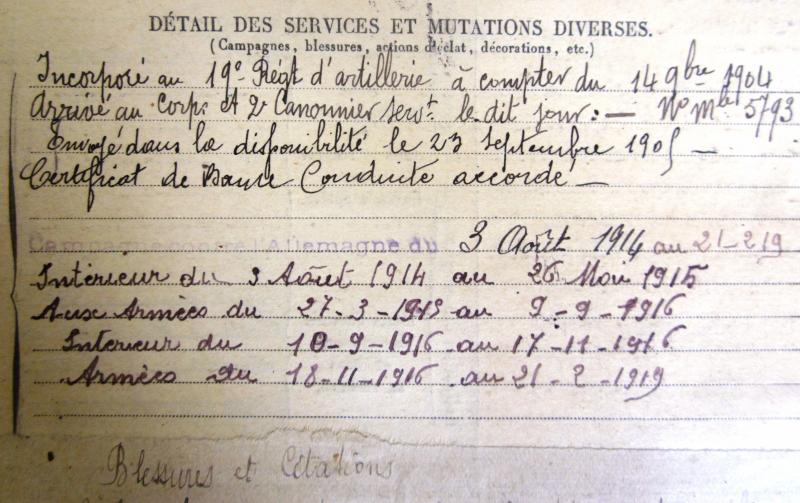 DÉTAIL DES SERVICES ET MUTATIONS DIVERSES.
(Campagnes, blessures, actions d'éclat, décorations, etc.)
Incorporé au 19e Régt d'artillerie à compter du 14 9bre 1904
Arrivé au Corps et 2e Canonnier servt le dit jour: — No Mle 5793
Envoyé dans la disponibilité le 23 septembre 1905 —
Certificat de Bonne Conduite accordé —
Campagne contre l'Allemagne du 3 Août 1914 au 21-2 19
Intérieur du 3 Août 1914 au 26 1915
Aux Armées du 27-3-1915 au 9-9-1916
Intérieur du 10-9-1916 au 17-11-1916
Armées du 18-11-1916 au 21-2-1919
Blessures et Citations